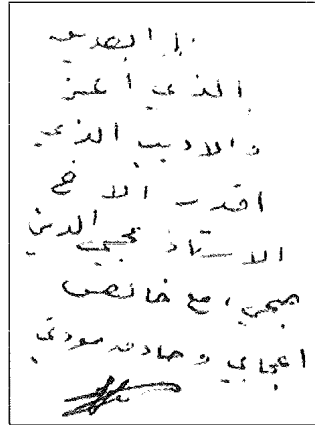 إلى الصديق
الذي أعتز
والأديب الذي
أقدر الأخ
الأستاذ محيي الدين
صبحي، مع خالص
اعجابي وصادق مودتي